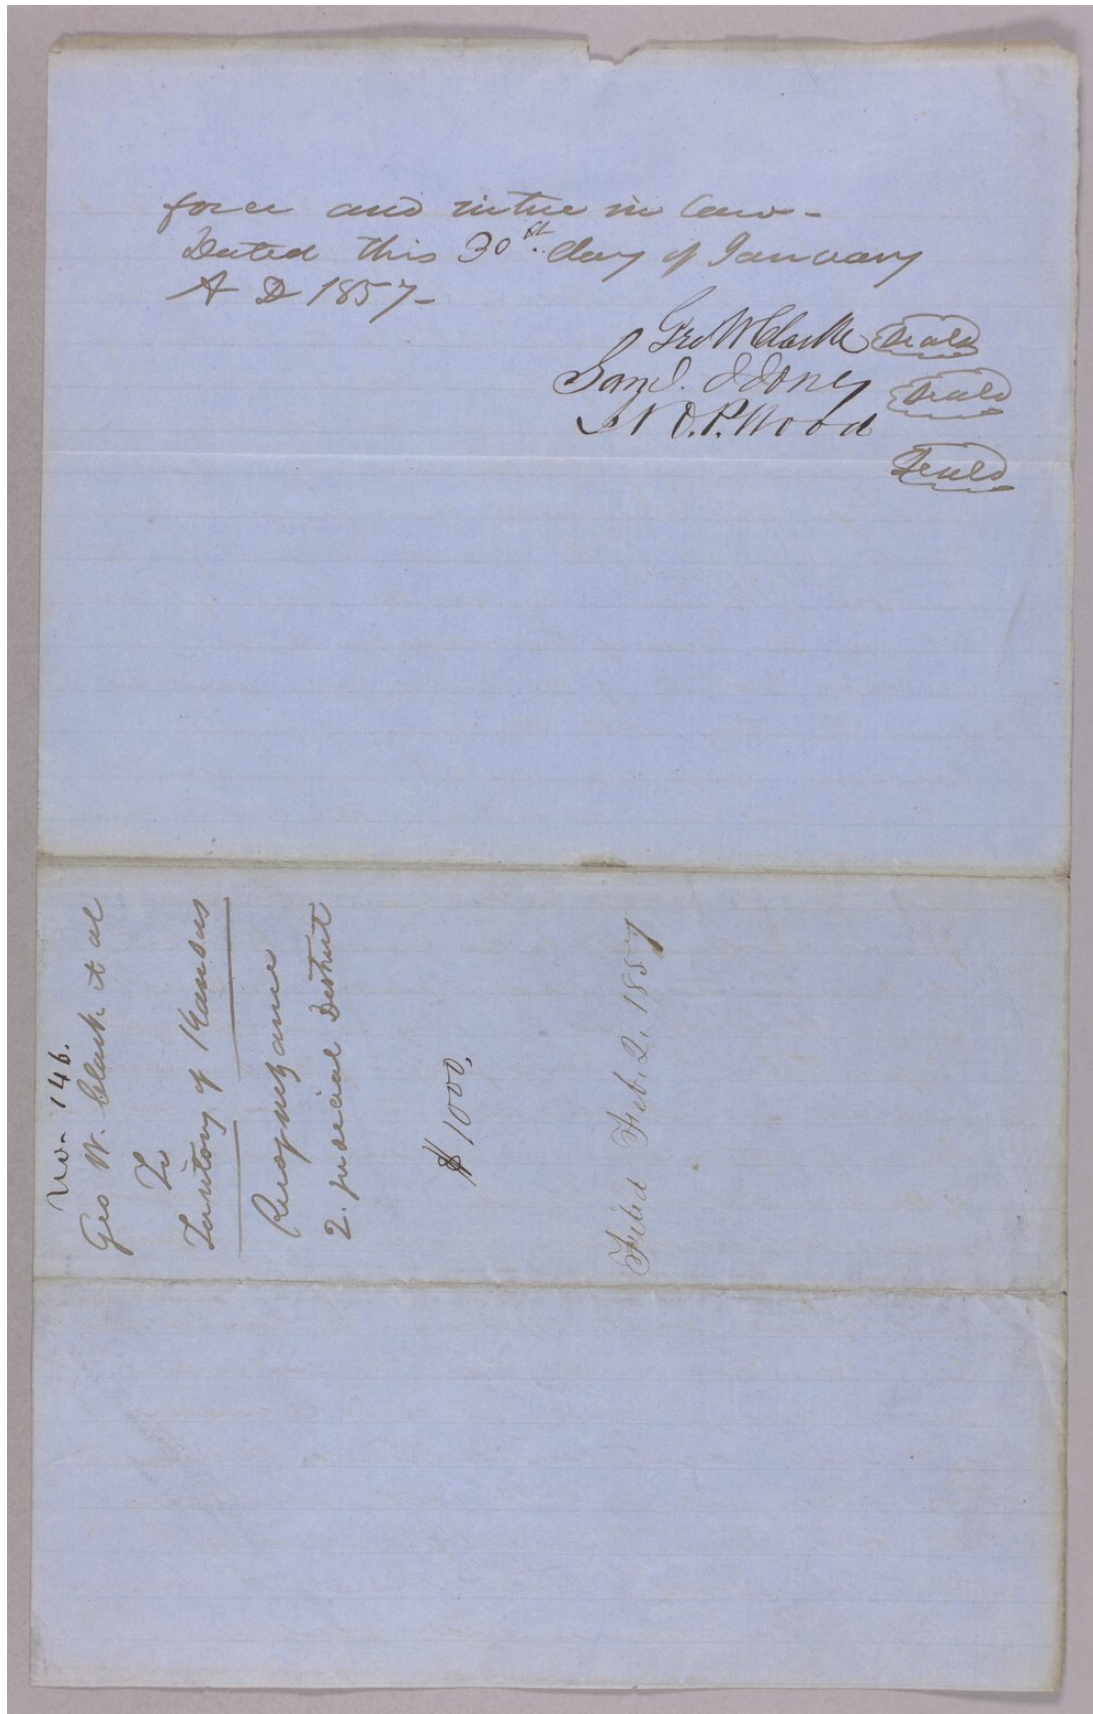 force and virtue in law -
Dated this 30th day of January
A D 1857 -
Geo W Clarke Seald
Saml. J Jones Seald
O.P. Wood
Seald
No. 146.
Geo W. Clark et al
To
Territory of Kansas
Recognizance
2. Judicial District
$1000,
Filed Feb. 2, 1857